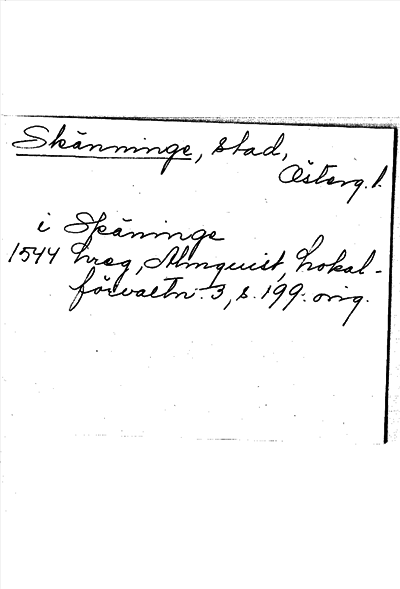 Skänninge, stad,
Österg. l.
i Skäninge
1544 hreg, Almquist, Lokal-
förvaltn. 3, s. 199. orig.